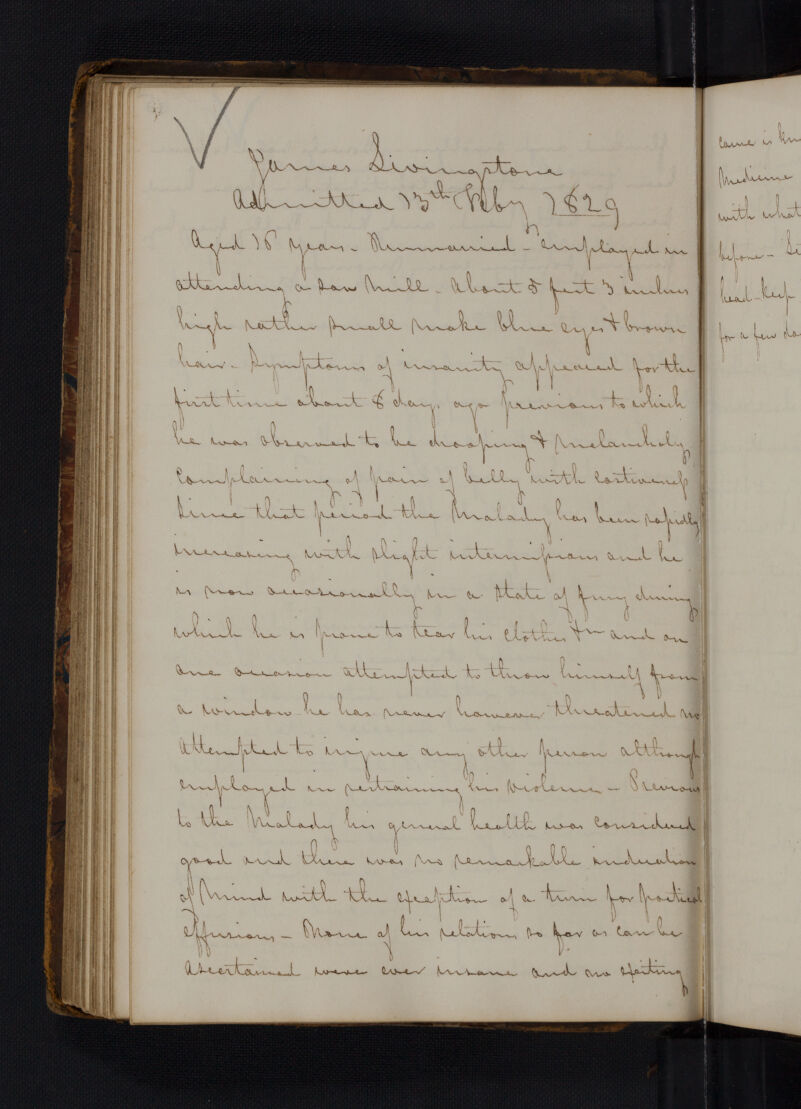 James Livingstone
Admitted 13th Feby 1829
Aged 18 years - Unmarried - employed in
attending a saw mill - about 5 feet 3 inches
high rather small make blue eyes & brown
hair - Symptoms of insanity appeared for the
first time about 8 days ago previous to which
he was observed to be drooping & melancholy
complaining of pain of belly with costiveness
Since that period the Malady has been rapidly
increasing with slight intermissions and he
is now occasionally in a state of fury during
which he is prone to tear his clothes &c and on
one occasion attempted to throw himself from
a window - he has never however threatened no
attempted to injure any other person although
employed in restraining his violence - Previous
to the Malady his general health was considered
good and there was no remarkable indication
of Mind with the exception of a turn for poetical
effusions - None of his relations so far as can be
ascertained were ever insane and no exciting
cause is kn
Medicine
with what
before -
head - Keep
for a few da